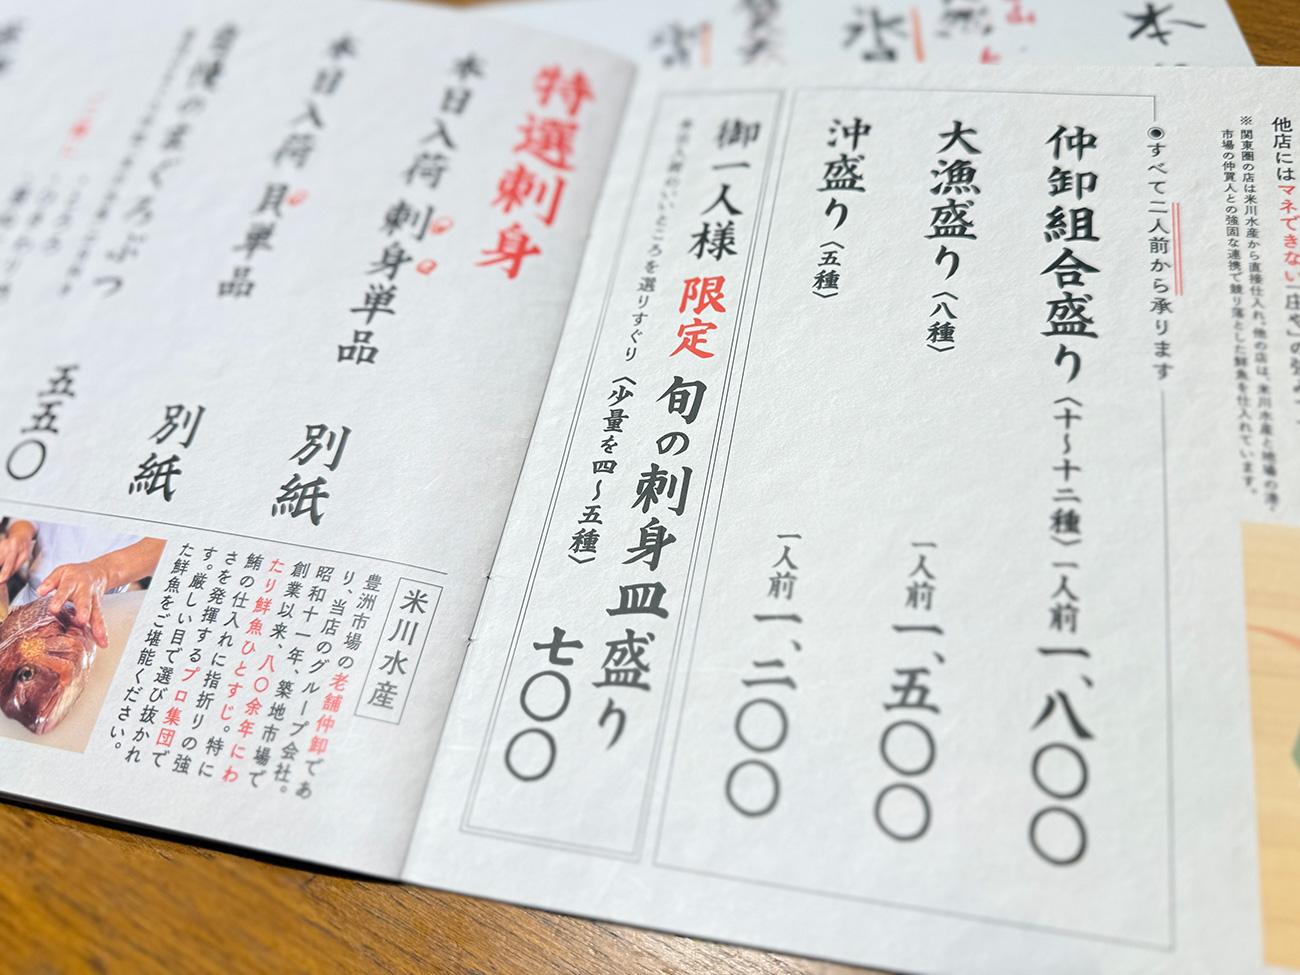 他店にはマネできない“庄や”の強み
※関東圏の店は米川水産から直接仕入れ。他の店は、米川水産と地場の港・
市場の仲買人との強固な連携で競り落とした鮮魚を仕入れています。
◉すべて二人前から承ります
仲卸組合盛り〈十〜十二種〉一人前 一、八〇〇
大漁盛り〈八種〉一人前 一、五〇〇
沖盛り〈五種〉一人前 一、二〇〇
御一人様限定 旬の刺身皿盛り
いいところを選りすぐり〈少量を四〜五種〉七〇〇
特選刺身
本日入荷 刺身単品 別紙
本日入荷 貝単品 別紙
自慢のまぐろぶつ 五五〇
米川水産
豊洲市場の老舗仲卸であ
り、当店のグループ会社。
昭和十一年、築地市場で
創業以来、八〇余年にわ
たり鮮魚ひとすじ。特に
鮪の仕入れに指折りの強
さを発揮するプロ集団で
す。厳しい目で選び抜かれ
た鮮魚をご堪能ください。